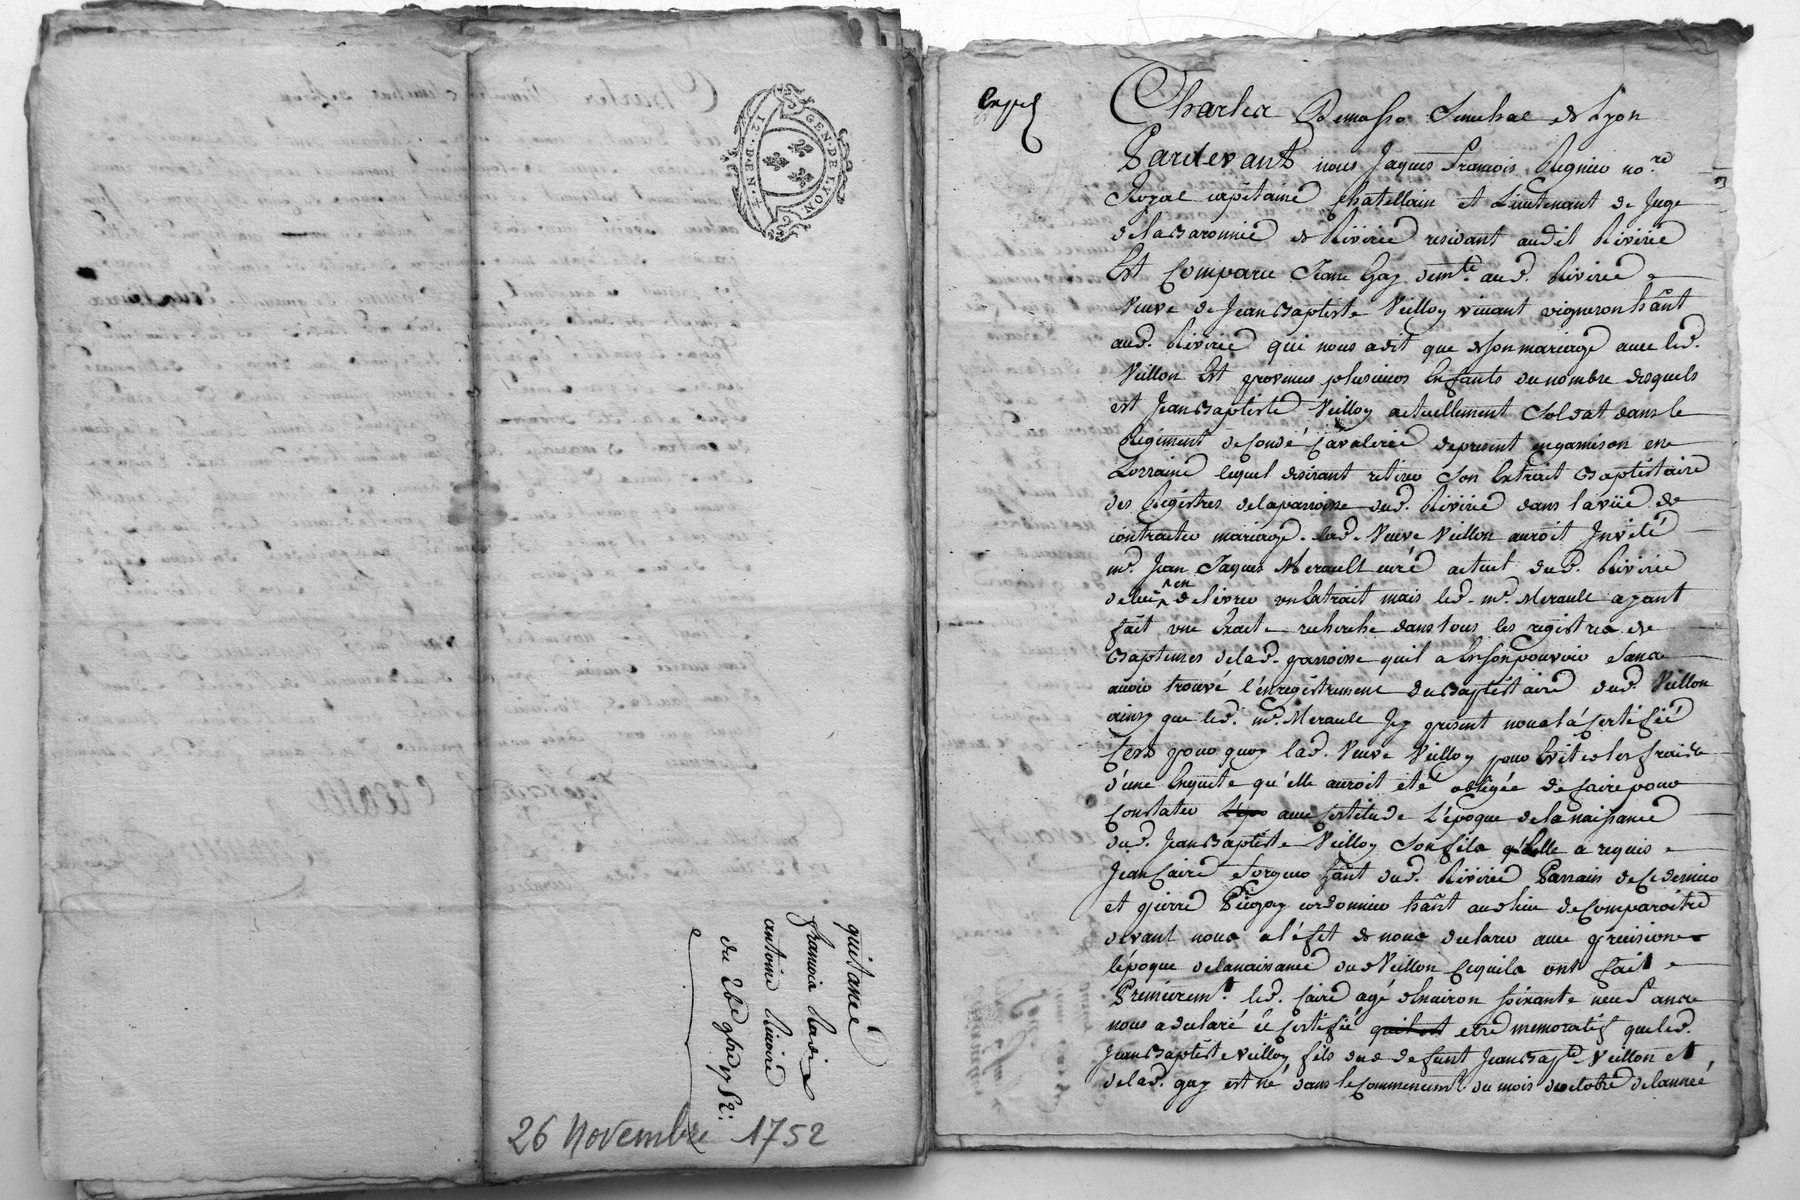 GEN. DE LYON
12. DEN.
quitance
francois
antoine Riviere
du 26e 9bre 1752:
26 Novembre 1752
Expé
Charles Demasso Senechal de Lyon
Pardevant nous Jaques Francois Regnier no.re
Royal capitaine chatellain et Lieutenant de Juge
de la Baronnie de Riviríe residant audit Riviríe
Est Comparu Jeane Gay demte. aud. Riviríe
Veuve de Jean Baptiste Veilloy vivant vigneron hãnt
aud. Riviríe qui nous a dit que de son mariage avec led.
Veillon Est provenus plusieurs Enfants du nombre desquels
est Jean Baptiste Veilloy actuellement Soldat dans le
Regiment de Condé Cavalerie de present en garnison en
Lorraine lequel desirant retirer Son Extrait Baptistaire
des Registres de la parroisse dud. Riviríe dans la vüe de
contracter mariage. lad. Veuve Veillon auroit Invité
mr. Jean Jaques Merault curé actuel dud. Riviríe
de luy en delivrer un Extrait mais led. mr. Merault ayant
fait une Exacte recherche dans tous les registres de
Baptemes de lad. parroisse quil a En son pouvoir Sans
avoir trouvé l'enregistrement du Baptistaire dud. Veillon
ainsy que led. mr. Merault Icy present nous la Certifié
Cest pour quoy lad. Veuve Veilloy pour Eviter les frais
d'une Enquete qu'elle auroit eté obligée de faire pour
Constater avec Certitude L'epoque de la naissance
dud. Jean Baptiste Veilloy Son fils qu'Elle a requis
Jean Caire hãnt dud. Riviríe Parrain de Ce dernier
et pierre cordonnier hãnt audt lieu de Comparoitre
devant nous a l'éfet de nous declarer avec precision
l'époque de la naissance dud Veillon Ce quils ont fait
Premierement. led. Caire agé denviron soixante neuf ans
nous a declaré et Certifié quil est etre memoratif que led.
Jean Baptiste Veilloy fils dud defunt Jean Bapte. Veillon et
de lad. gay est né dans le Commencemt. du mois doctobre de lannée